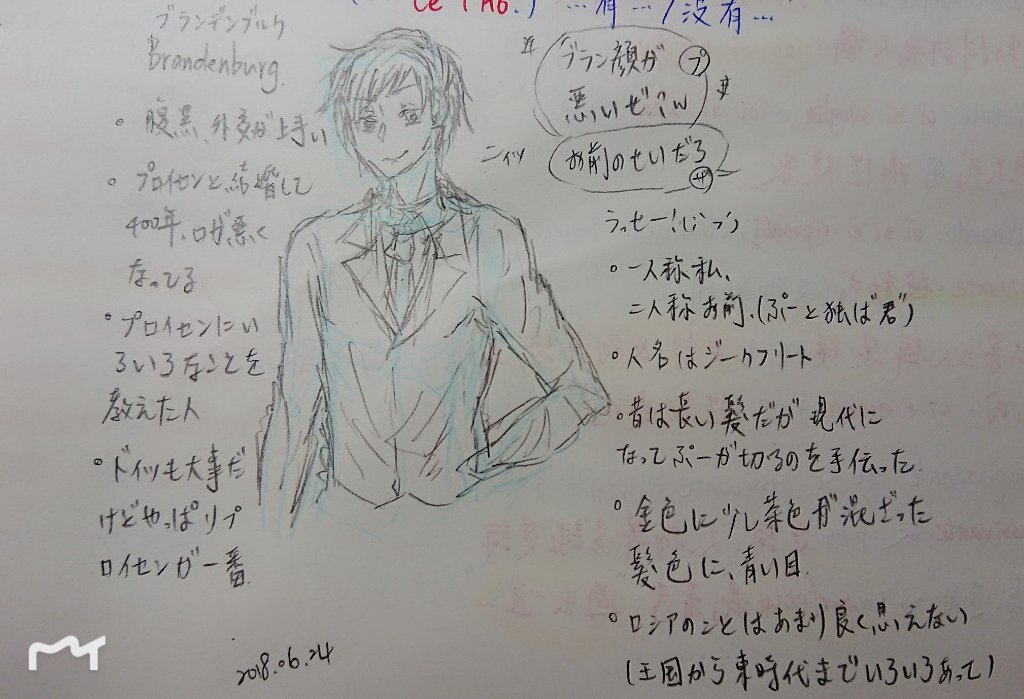 ...有.../没有...
ブランデンブルク
Brandenburg.
。腹黒、外交が上手い
。プロイセンと結婚して
400年、口が悪く
なってる
。プロイセンにい
ろいろなことを
教えた人
。ドイツも大事だ
けどやっぱりプ
ロイセンが一番
2018.06.24
ブラン顔が プ
悪いぜ;w
お前のせいだろ
ニィッ
うっせー!
。一人称私、
二人称お前、(ぷーと独は君)
。人名はジークフリート
。昔は長い髪だが現代に
なってぷーが切るのを手伝った.
。金色に少し茶色が混ざった
髪色に、青い目.
。ロシアのことはあまり良く思えない
(王国から東時代までいろいろあって)